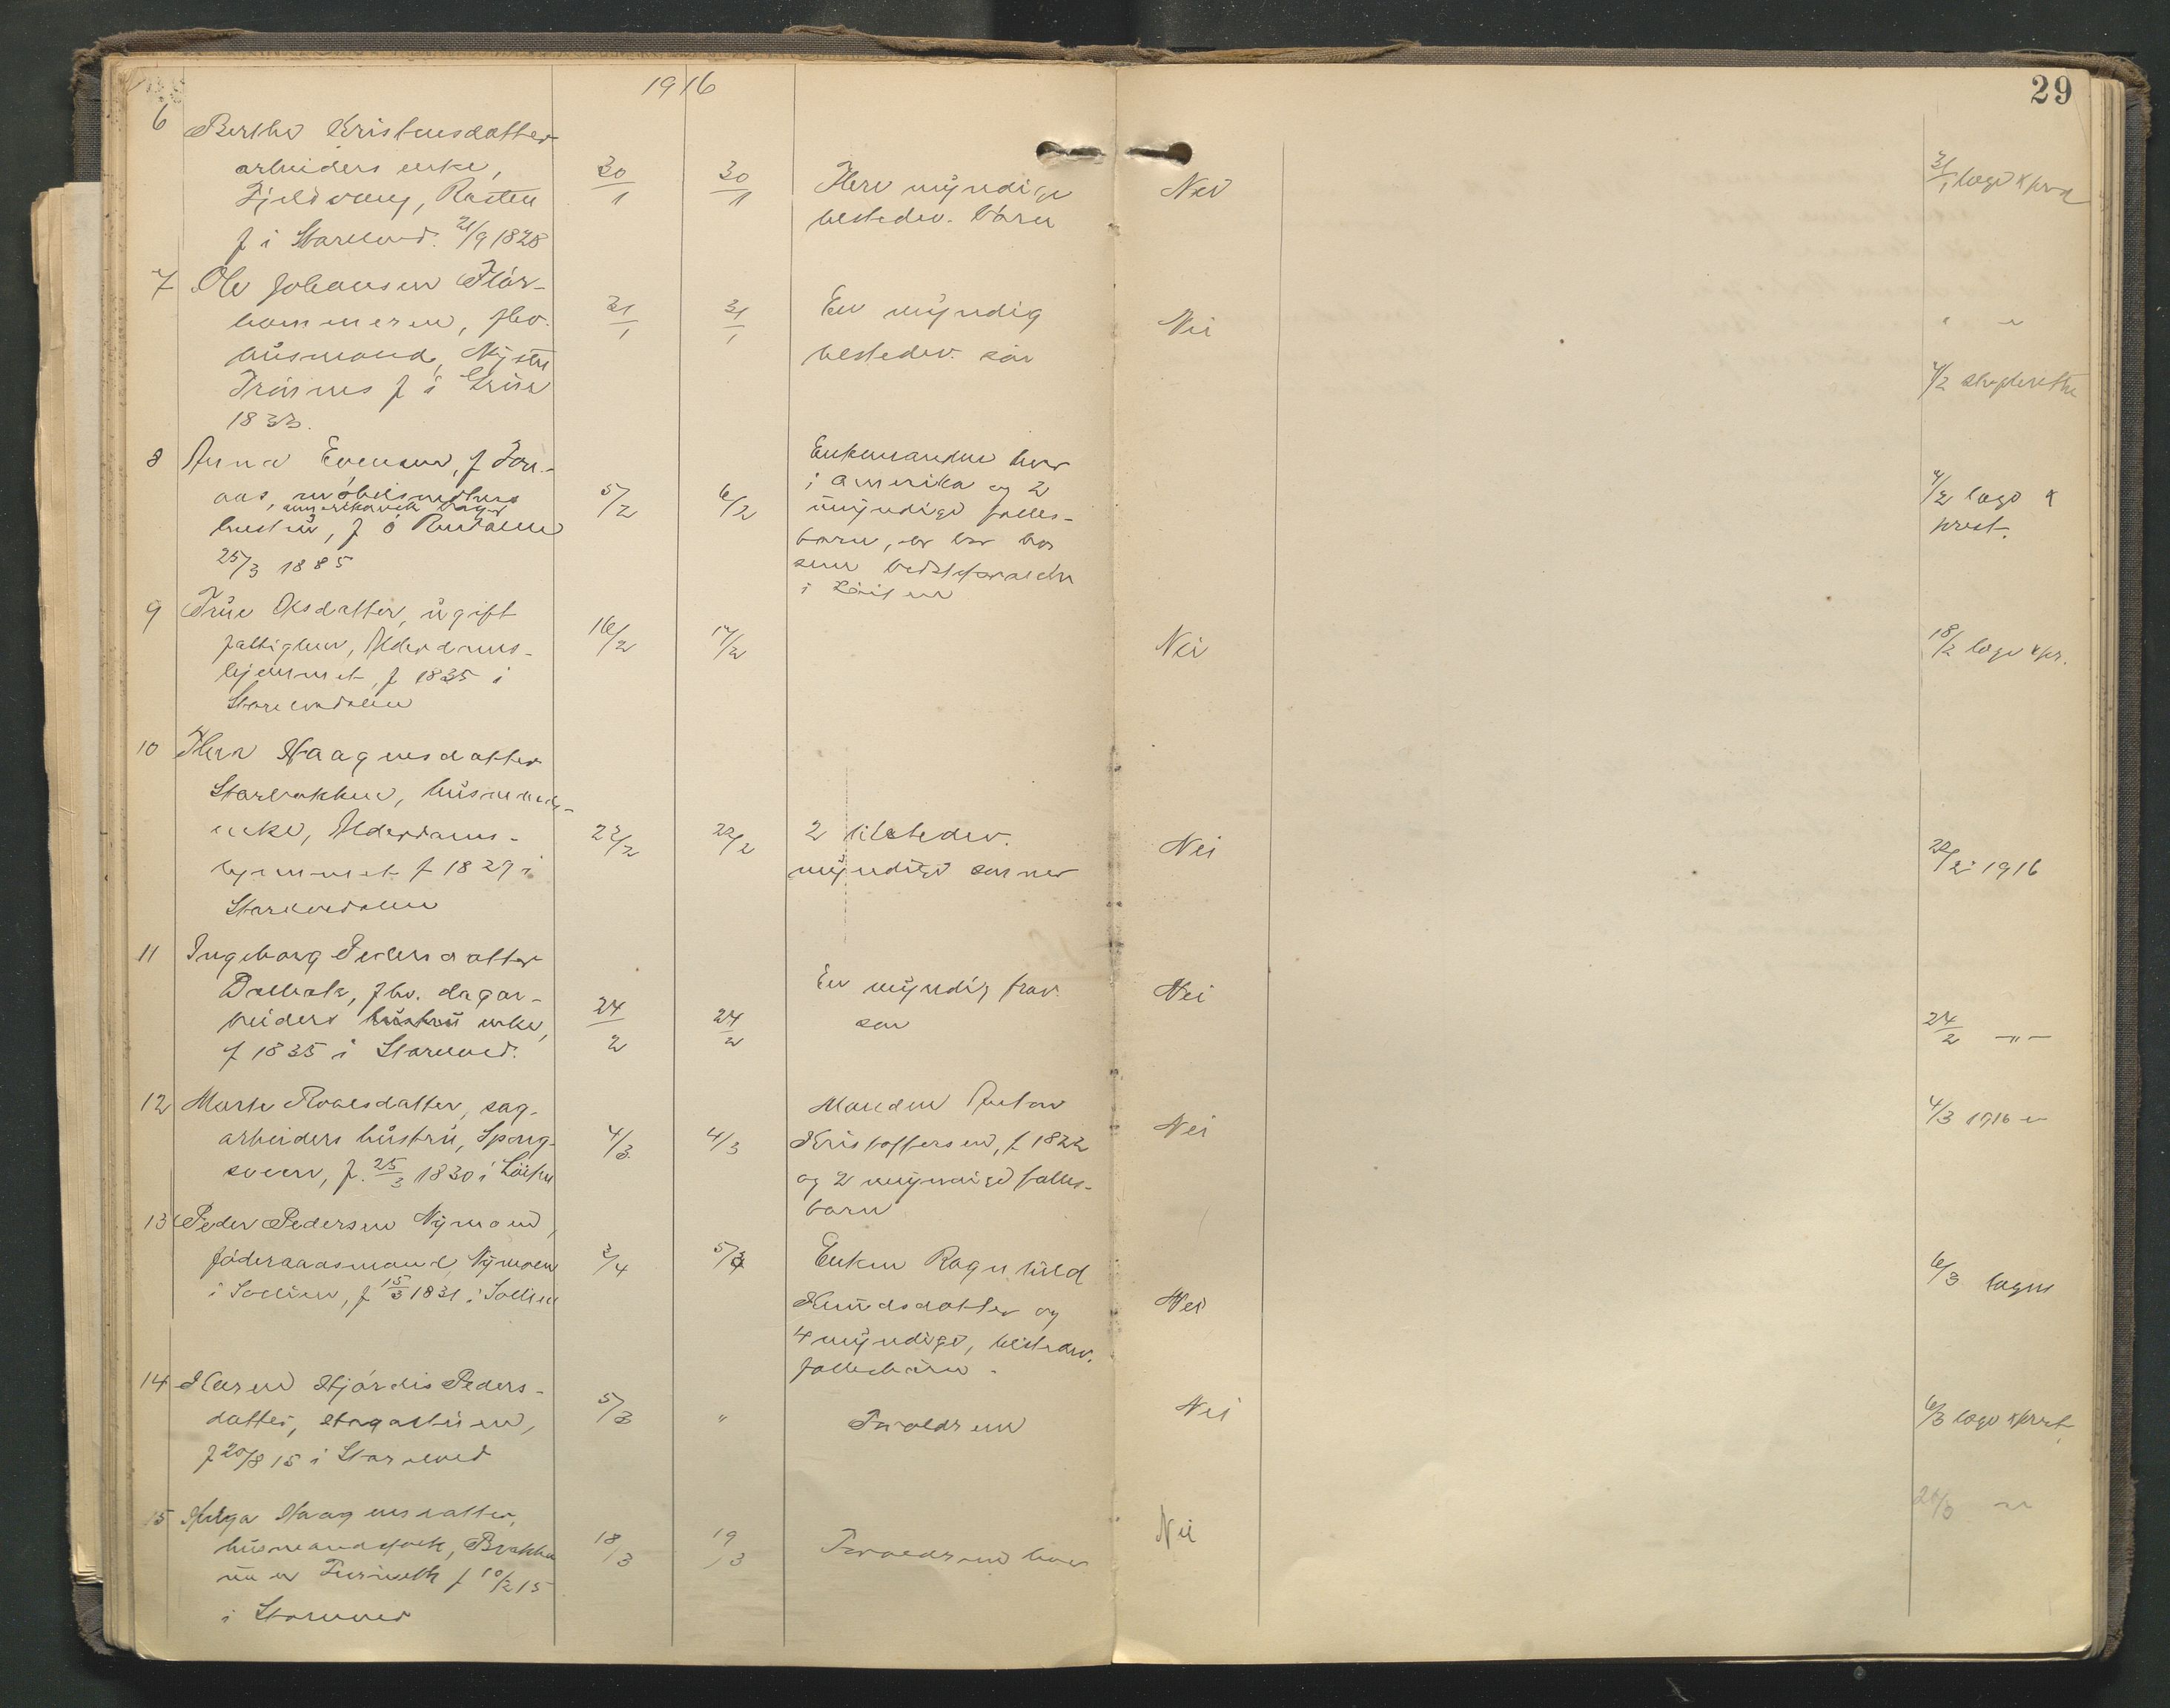 1916
29
6 Berthe Kristensdatter
arbeiders enke,
Fjeldvang, Rasten
f i Storelved. 21/9 1828
30/1
30/1
Flere myndige
tilstedev. börn
Nei
31/1 læge & prest
7 Ole Johansen Flör-
hammeren, fhv.
husmand, Nysetu
f i Grue
1833.
31/1
31/1
En myndig
tilstedev. sön
Nei
" "
4/2 skifteretten
8 Anna Evensen, f
aas, möbelsnedkers
amerikansk borger
hustru, f i Rendalen
25/3 1885
5/2
6/2
Enkemanden bor
i Amerika og 2
umyndige fælles-
barn, er her hos
sine bedsteforældre
i Löiten
7/2 læge &
prest.
9 Trine Olsdatter, ugift
fattiglem, Alderdoms-
hjemmet, f 1835 i
Storelvedalen
16/2
17/2
Nei
18/2 læge & pr.
10 Haagensdatter
Storbakken, husmands-
enke, Alderdoms-
hjemmet f 1827 i
Storelvedalen
22/2
22/2
2 tilstedev.
myndige sönner
Nei
22/2 1916
11 Ingeborg Pedersdatter
fhv. dagar-
beiders hustru enke,
f 1835 i Storelved.
24/2
24/2
En myndig frav.
sön
Nei
24/2 -"-
12 Marte Roaldsdatter, sag-
arbeiders hustru,
f. 25/3 1830 i Löiten
4/3
4/3
Manden Anton
Kristoffersen, f 1822
og 2 myndige fælles-
barn
Nei
4/3 1916
13 Peder Pedersen Nymoen,
föderaadsmand, Nymoen
i Sollien, f 15/3 1831 i Sollien
3/4
5/3
Enken Ragnhild
Knudsdatter og
4 myndige, tilstedev.
fællesbarn.
Nei
6/3 lægen
14 Karen Hjördis Peders-
datter,
f 20/8 15 i Storelved
5/3
"
Forældrene
Nei
6/3 læge & prest
15 Helga Haagensdatter,
husmandsfolk, Brakka
f 10/2 15
i Storelved
18/3
19/3
Forældrene bor
Nei